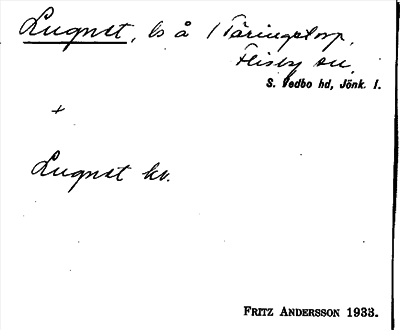 Lugnet, ls å 1 Täringstorp,
Flisby sn,
S. Vedbo hd, Jönk. l.
+
Lugnet kv.
FRITZ ANDERSSON 1933.